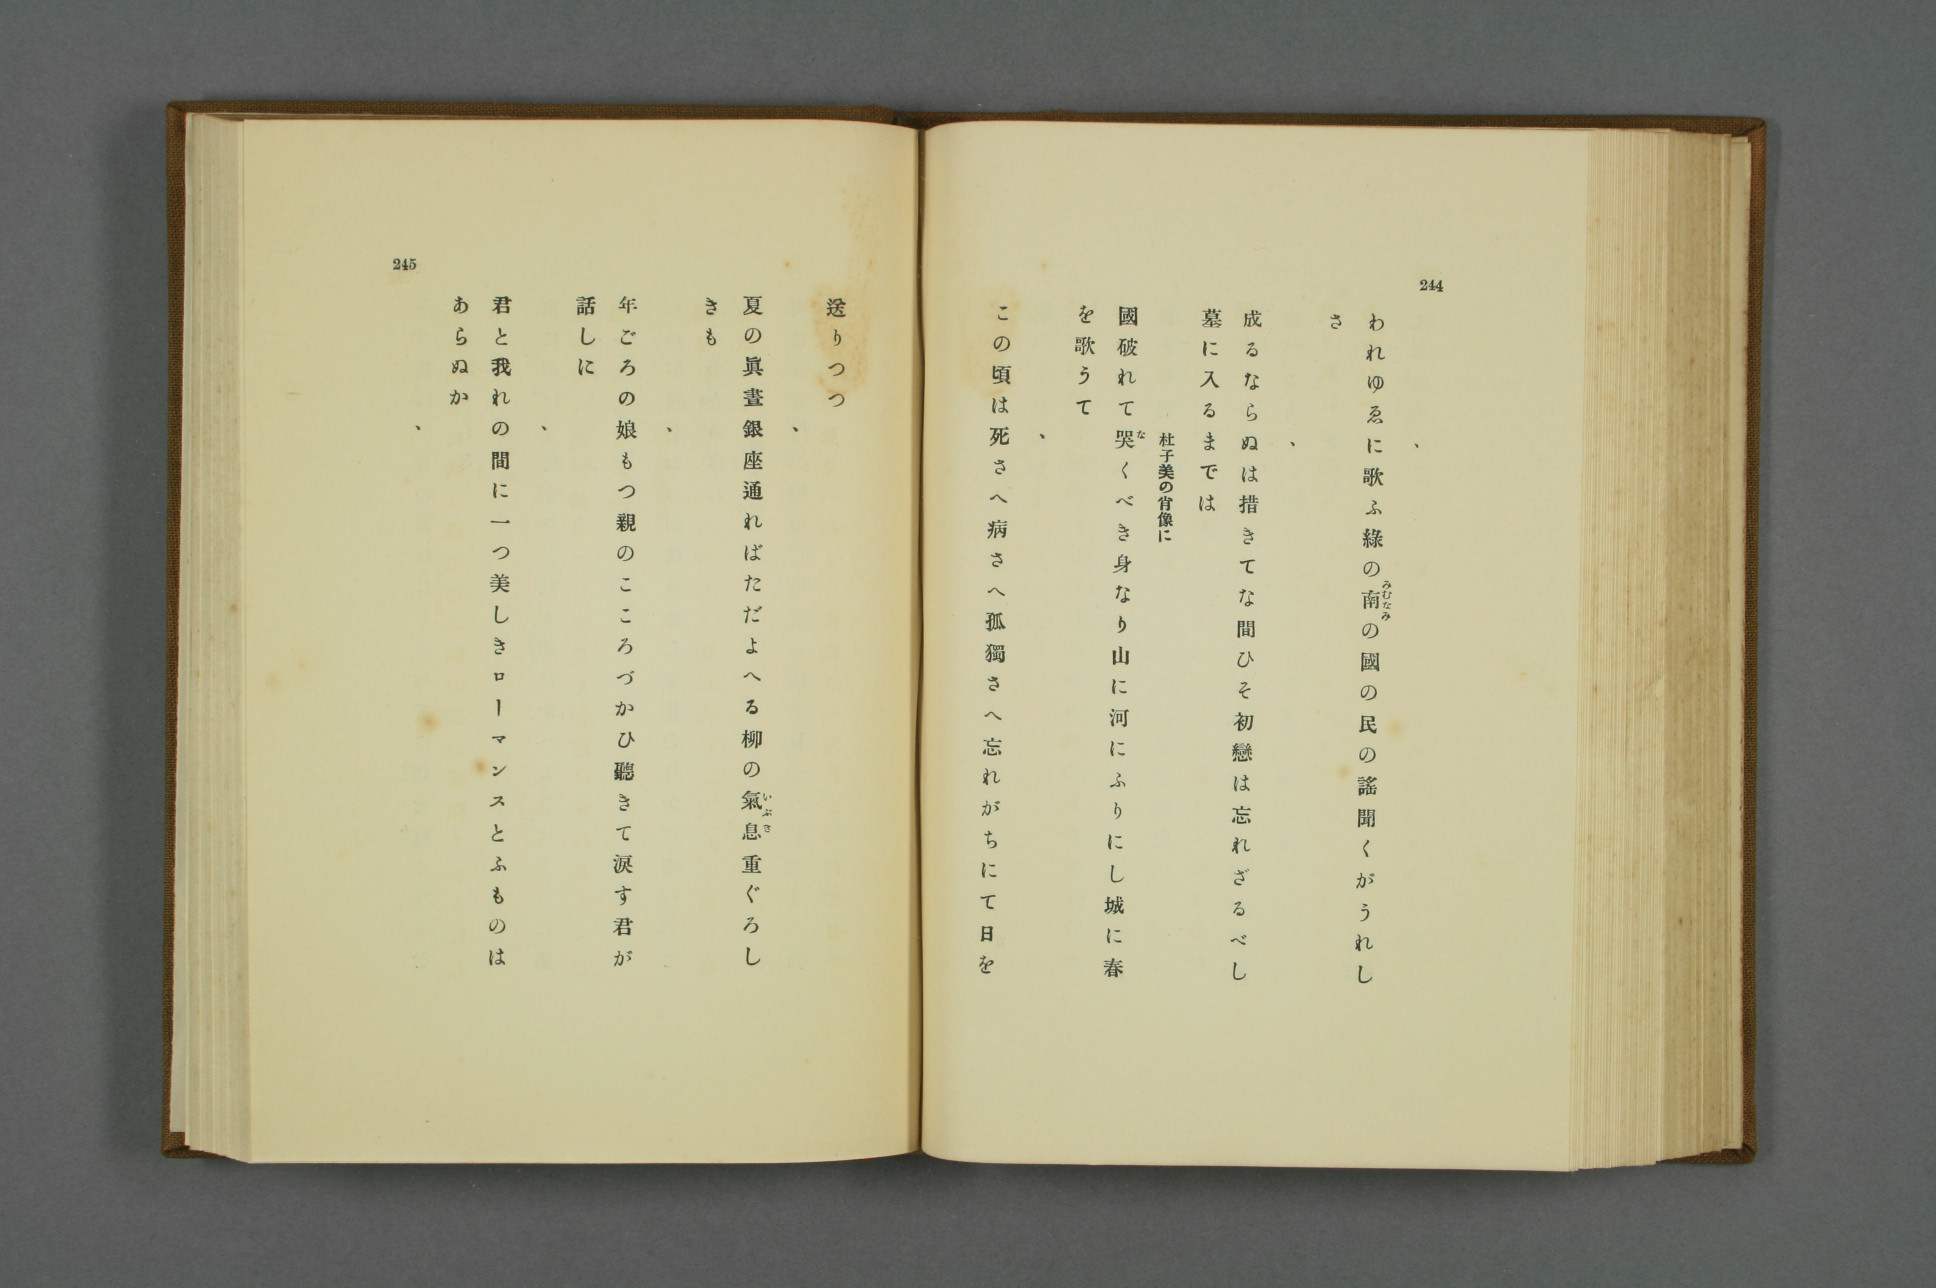 244
、
われゆゑに歌ふ綠の南の國の民の謠聞くがうれし
みむなみ
さ
、
成るならぬは措きてな間ひそ初戀は忘れざるべし
墓に入るまでは
杜子美の肖像に
國破れて哭くべき身なり山に河にふりにし城に春
な
を歌うて
、
この頃は死さへ病さへ孤獨さへ忘れがちにて日を
送りつつ
、
夏の眞晝銀座通ればただよへる柳の氣息重ぐろし
いぶき
きも
、
年ごろの娘もつ親のこころづかひ聽きて淚す君が
話しに
、
君と我れの間に一つ美しきローマンスとふものは
あらぬか
、
245